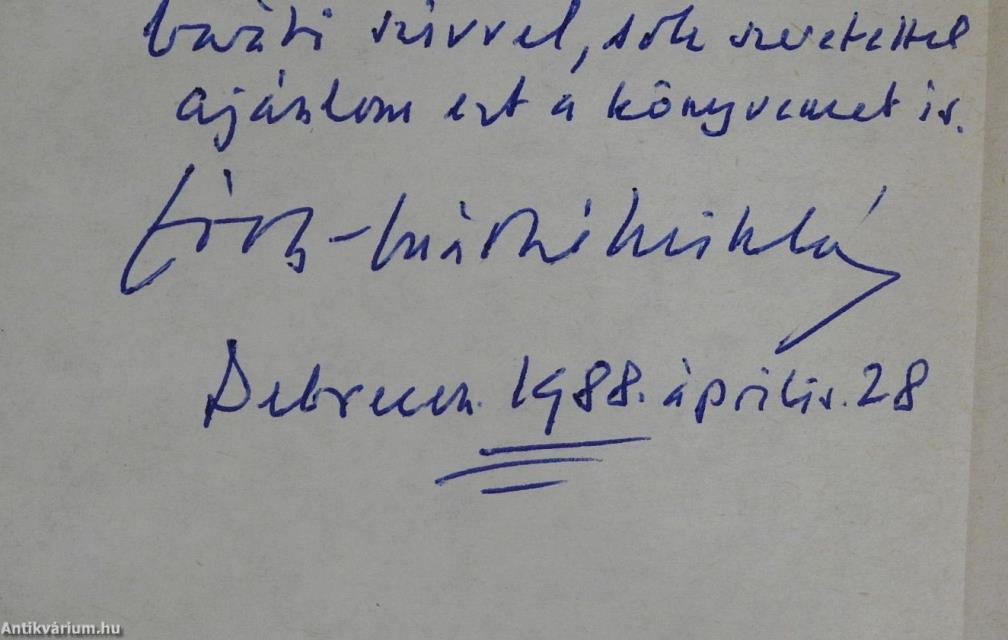 baráti szívvel, sok szeretettel
ajánlom ezt a könyvemet is.
Debrecen. 1988. április. 28
Antikvárium.hu